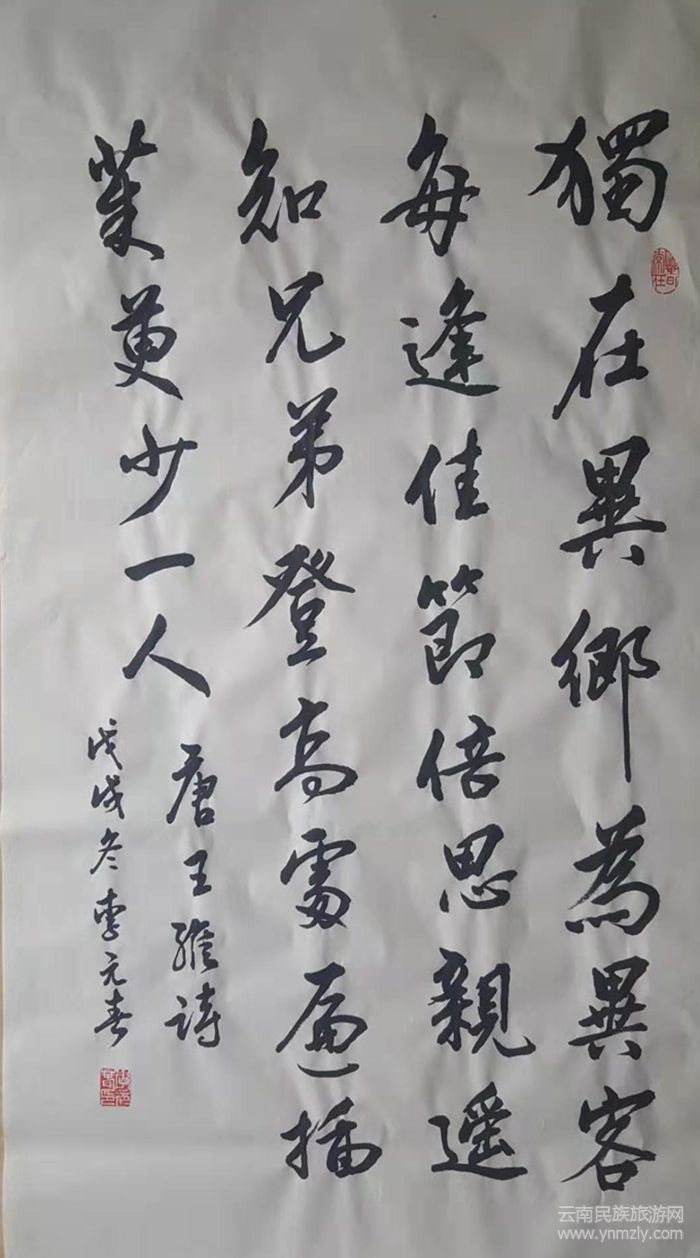 獨在異鄉為異客
每逢佳節倍思親遥
知兄弟登高處遍插
茱萸少一人
唐王維詩
戊戌冬李元春
云南民族旅游网
www.ynmzly.com